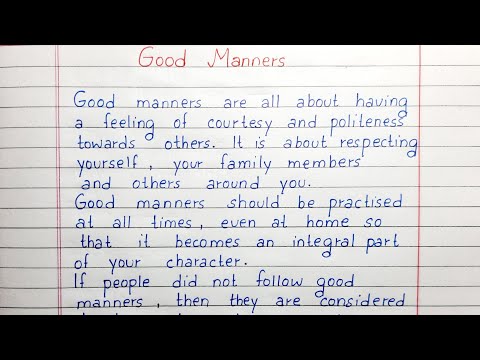 Good Manners
Good manners are all about having
a feeling of courtesy and politeness
towards others. It is about respecting
yourself, your family members
and others around you.
Good manners should be practised
at all times, even at home so
that it becomes an integral part
of your character.
If people did not follow good
manners, then they are considered